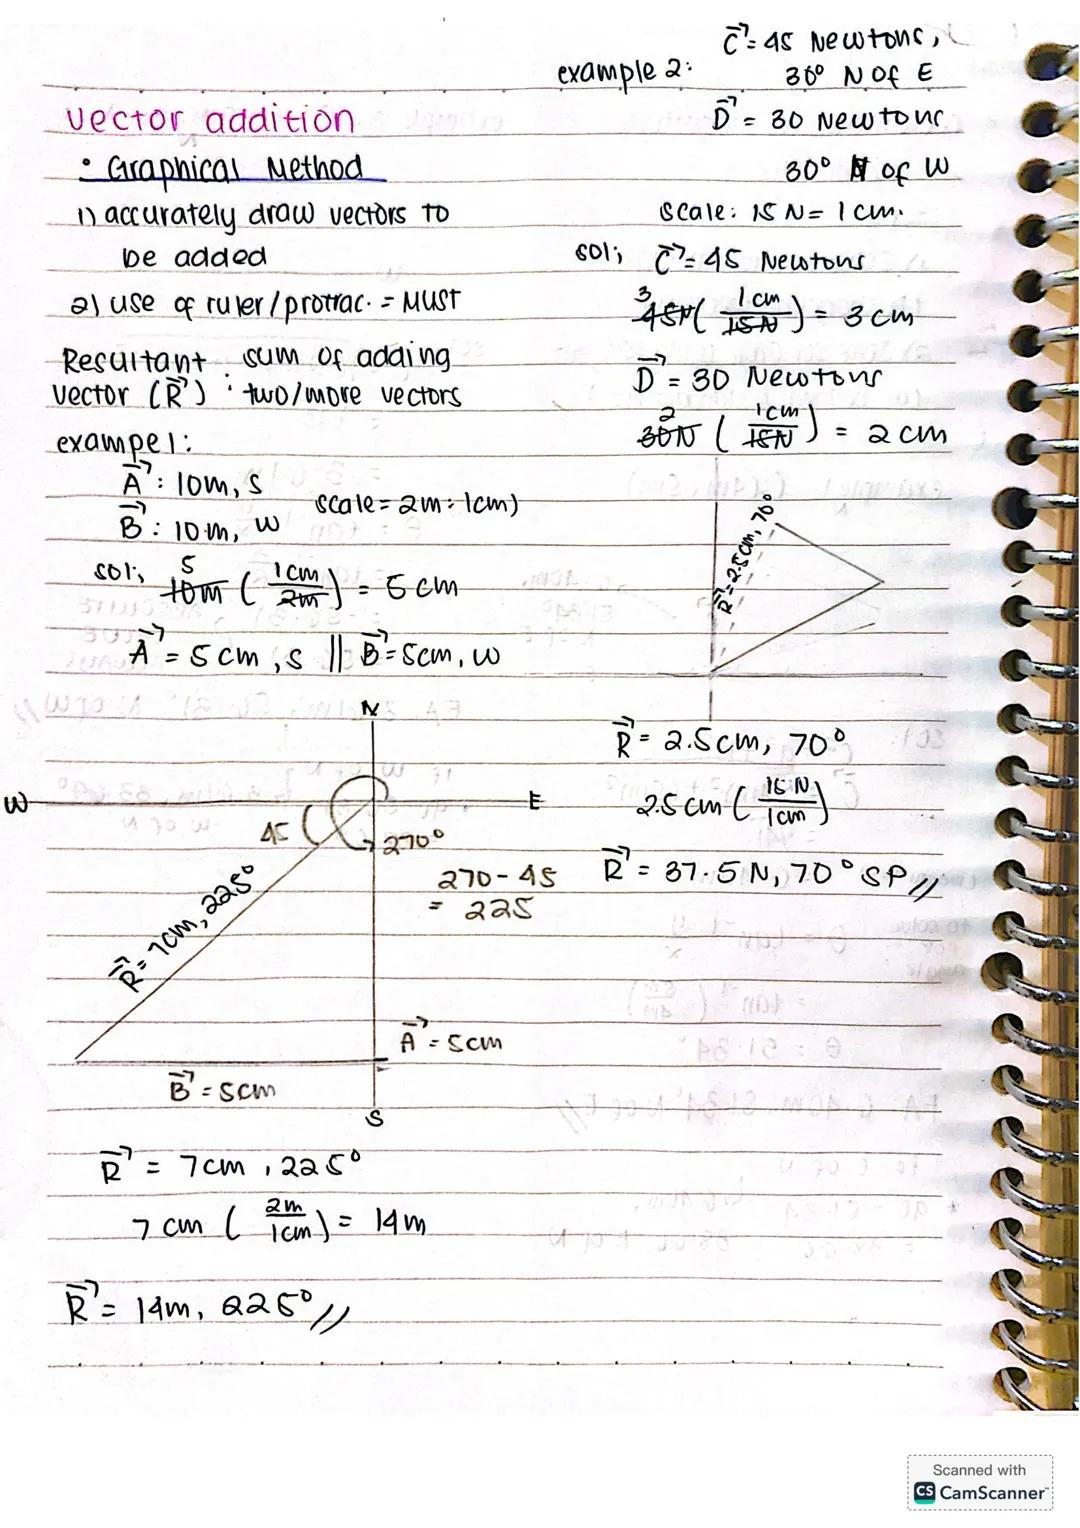 Vector addition
• Graphical Method
1) accurately draw vectors to
be added
2) use of ruler/protrac. = MUST
Resultant : sum of adding
vector (R⃗) : two/more vectors
exampe1:
A⃗ : 10m, S
B⃗ : 10m, W
scale = 2m : 1cm)
sol; 5
10m ( 1cm / 2m ) = 5 cm
A⃗ = 5cm, S || B⃗ = 5cm, W
N
W
E
45
270°
270 - 45
= 225
R⃗ = 7cm, 225°
A⃗ = 5cm
B⃗ = 5cm
S
R⃗ = 7cm, 225°
7 cm ( 2m / 1cm ) = 14m
R⃗ = 14m, 225° //
example 2: C⃗ = 45 Newtons,
30° N of E
D⃗ = 30 Newtons
30° N of W
scale: 15 N = 1 cm.
sol; C⃗ = 45 Newtons
3
45N ( 1 cm / 15 N ) = 3 cm
D⃗ = 30 Newtons
2
30N ( 1cm / 15N ) = 2 cm
R⃗ = 2.5cm, 70°
R⃗ = 2.5cm, 70°
2.5 cm ( 15 N / 1cm )
R⃗ = 37.5 N, 70° SP //
Scanned with
CS CamScanner